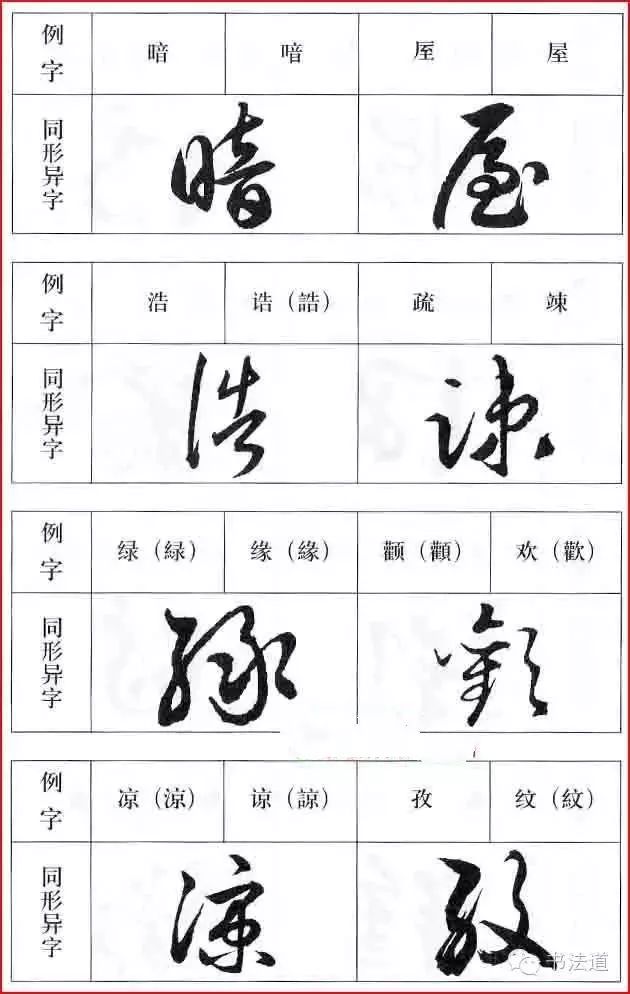 例字 暗 喑 厔 屋
同形异字
例字 浩 诰（誥） 疏 竦
同形异字
例字 绿（緑） 缘（緣） 颧（顴） 欢（歡）
同形异字
例字 凉（涼） 谅（諒） 孜 纹（紋）
同形异字
书法道